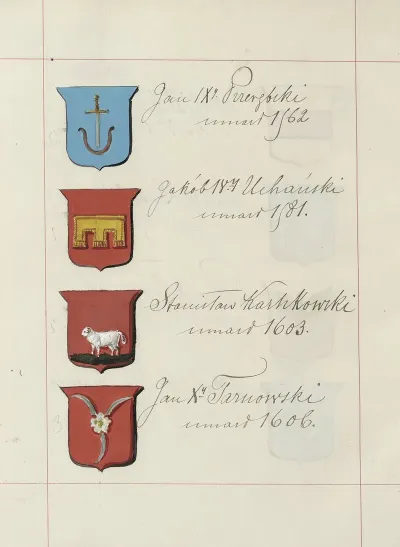 Jan IXy Przerębski
umarł 1562
Jakób IVty Uchański
umarł 1581.
Stanisław Karnkowski
umarł 1603.
Jan Xty Tarnowski
umarł 1606.